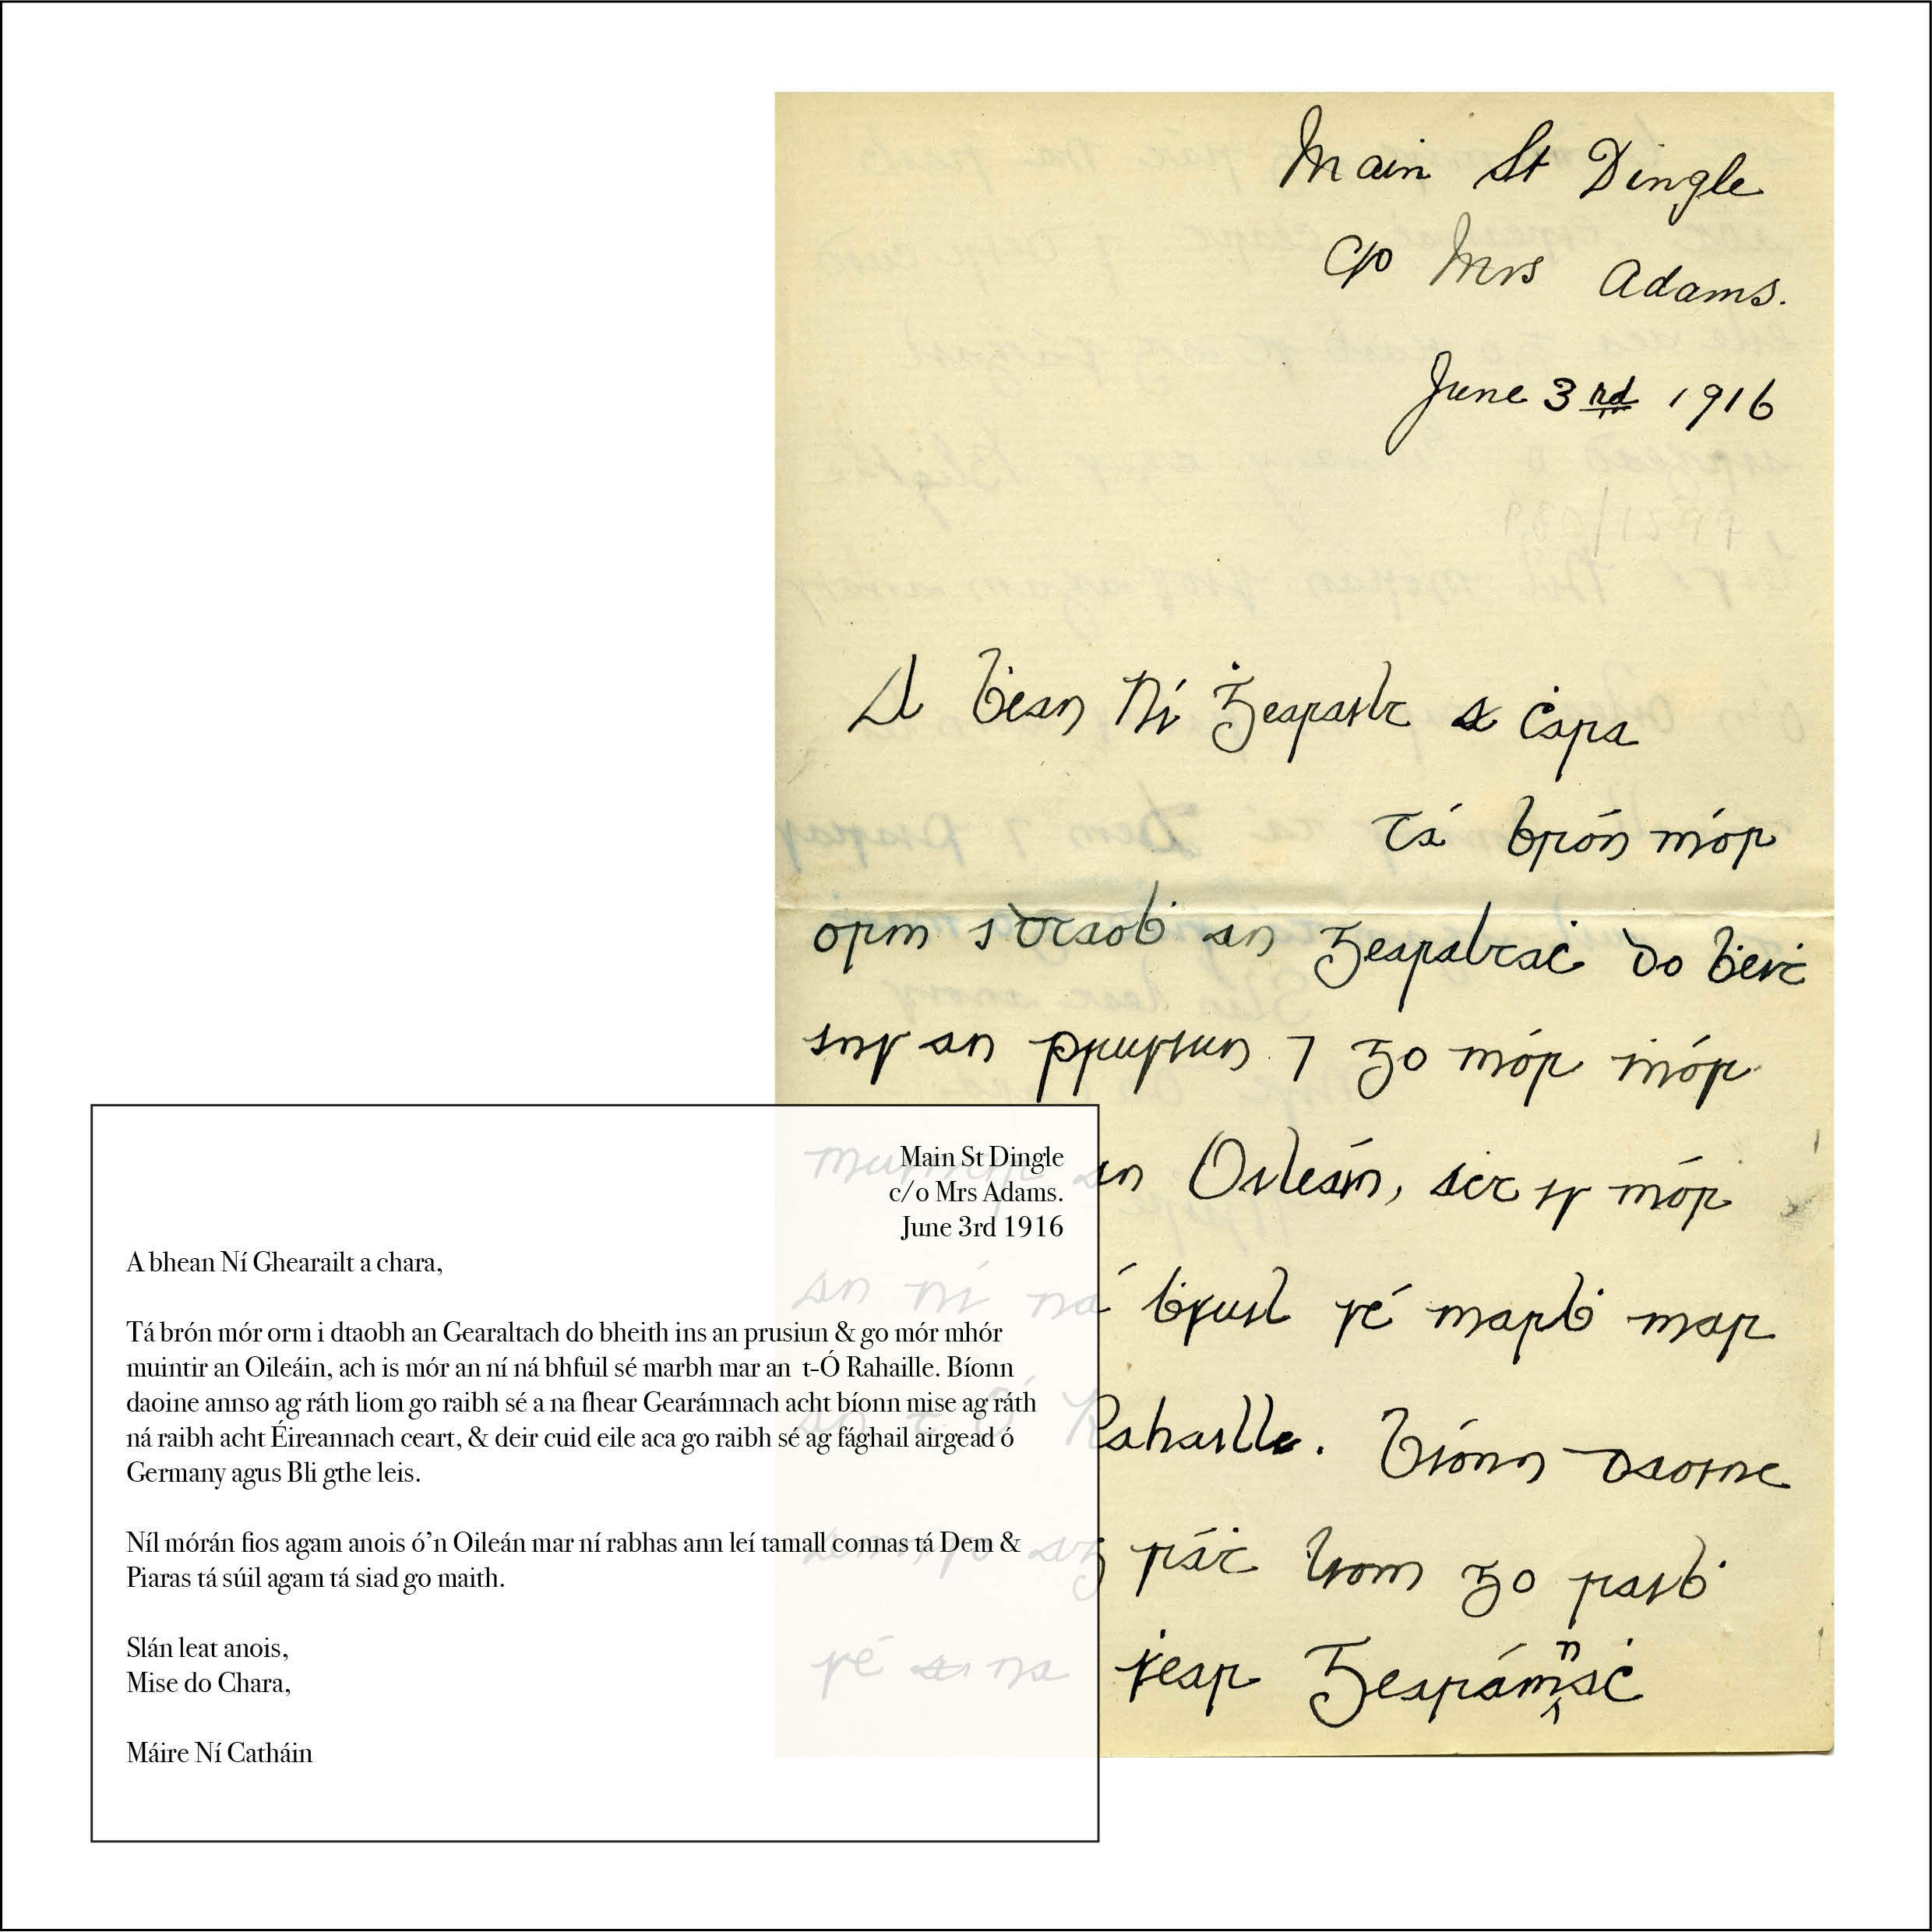 Main St Dingle
C/o Mrs Adams.
June 3rd 1916
A ḃean Ní Ġearailt a ċara
tá brón mór
orm i dtaoḃ an Gearaltaċ do ḃeiṫ
ins an prusiun ⁊ go mór ṁór
muintir an Oileáin, aċt is mór
an ní ná ḃfuil sé marḃ mar
an t-Ó Rahaille. Bíonn daoine
annso ag ráṫ liom go raiḃ
sé a na ḟear Gearámnaċ
Main St Dingle
c/o Mrs Adams.
June 3rd 1916
A bhean Ní Ghearailt a chara,
Tá brón mór orm i dtaobh an Gearaltach do bheith ins an prusiun & go mór mhór
muintir an Oileáin, ach is mór an ní ná bhfuil sé marbh mar an t-Ó Rahaille. Bíonn
daoine annso ag ráth liom go raibh sé a na fhear Gearámnach acht bíonn mise ag ráth
ná raibh acht Éireannach ceart, & deir cuid eile aca go raibh sé ag fághail airgead ó
Germany agus Bli gthe leis.
Níl mórán fios agam anois ó'n Oileán mar ní rabhas ann leí tamall connas tá Dem &
Piaras tá súil agam tá siad go maith.
Slán leat anois,
Mise do Chara,
Máire Ní Catháin